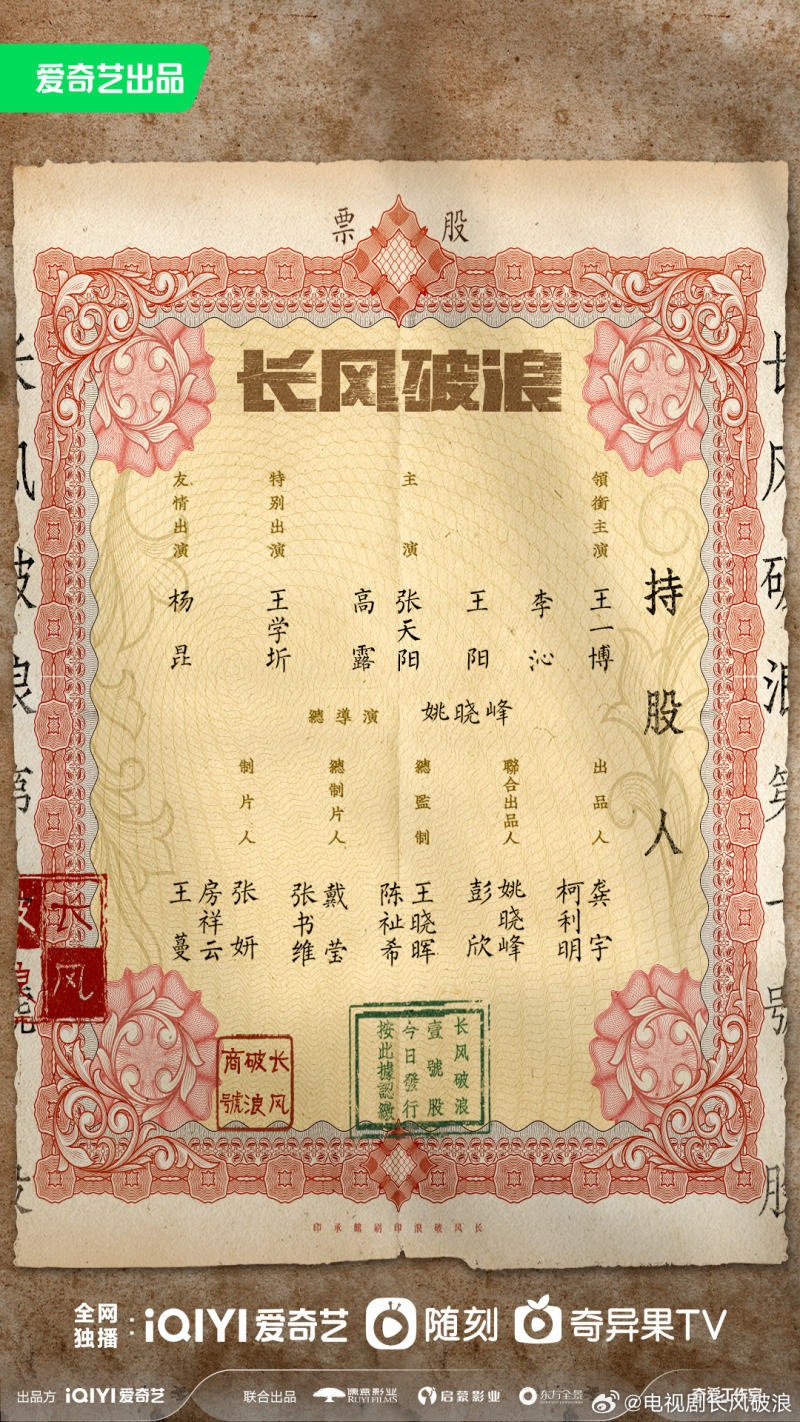 爱奇艺出品
股票
长风破浪
持股人
領銜主演
王一博
主演
李沁
王阳
张天阳
高露
特别出演
王学圻
友情出演
杨昆
總導演 姚晓峰
出品人
龚宇
柯利明
聯合出品人
姚晓峰
彭欣
總監制
王晓晖
陈祉希
總制片人
戴莹
张书维
制片人
张妍
房祥云
王蔓
长风破浪第一号股
长风破浪第
股
长风破浪
长风破浪商號
长风破浪
壹號股
今日發行
按此據認繳
长风破浪印刷館承印
全网独播:iQIYI爱奇艺 随刻 奇异果TV
出品方 iQIYI爱奇艺 联合出品 儒意影业 RUYI FILMS 启蒙影业 东方全景
@电视剧长风破浪